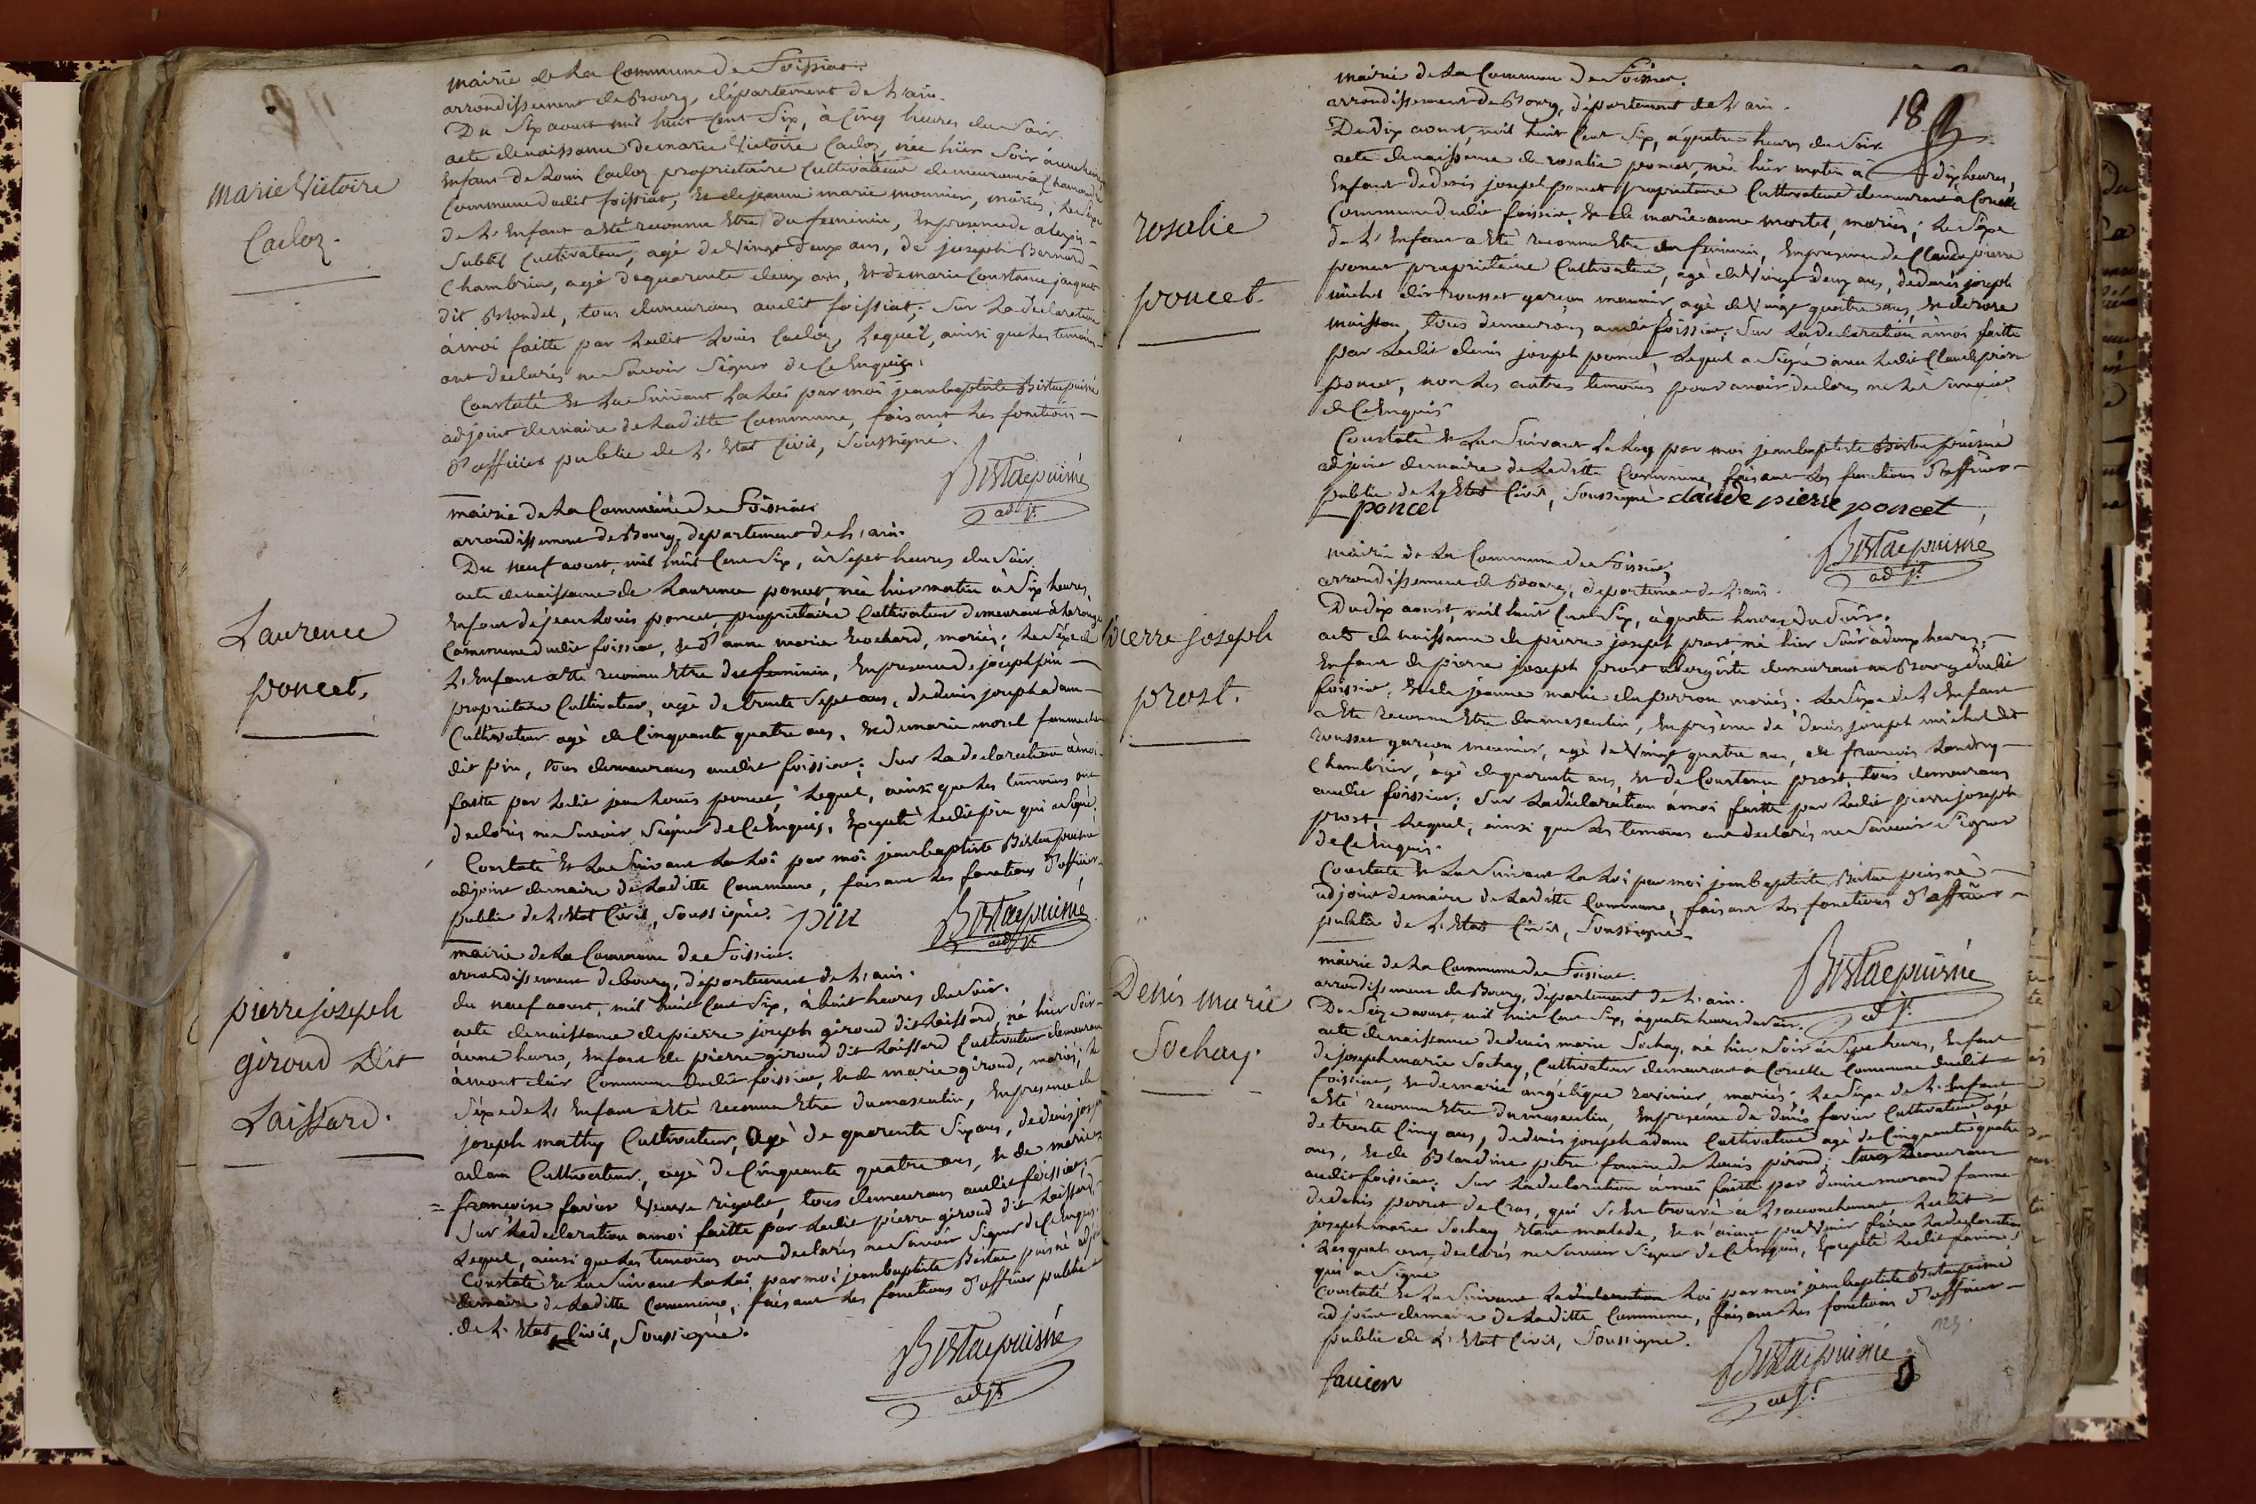 mairie de La Commune De Foissiat.
arrondissement de Bourg, département de L'ain.
Du Six aoust mil huit Cent Six, à Cinq heures du Soir.
acte de naissance de marie Victoire Cadoz, née hier Soir à une heure
Enfant de Louis Cadoz propriétaire Cultivateur demeurant à
Commune dudit foissiat, et de jeanne marie monnier, mariés; Le Sexe
de L'Enfant a Eté reconnu Etre du feminin, En présence de alexis
Subtil Cultivateur, agé de Vingt Deux ans, de joseph Bernard
Chambrier, agé de quarente deux ans, et de marie Constance jacquet
dit Blondel, tous demeurans audit foissiat. Sur La déclaration
à moi faitte par Ledit Louis Cadoz, Lequel, ainsi que Les temoins
ont declarés ne Savoir Signer de Ce Enquis.
Constaté et Lu Suivant La Loi par moi jean baptiste Bistac puisné
adjoint de maire de Laditte Commune, faisant Les fonctions
D'officier public de L'Etat Civil, Soussigné.
Bistac puisné
adjt.
marie Victoire
Cadoz.
mairie de La Commune De Foissiat
arrondissement de Bourg, département de L'ain.
Du neuf aoust, mil huit Cent Six, à Sept heures du Soir
acte de naissance de Laurence poncet née hier matin à Six heures,
Enfant de jean Louis poncet, propriétaire Cultivateur demeurant à
Commune dudit foissiat, et D'anne marie Rochard, mariés; Le Sexe de
L'Enfant a Eté reconnu Etre du feminin, En présence de joseph pin
propriétaire Cultivateur, agé de trente Sept ans, de denis joseph adam
Cultivateur agé de Cinquante quatre ans, et de marie morel femme
dit pin, tous demeurans audit foissiat; Sur La déclaration à moi
faitte par Ledit jean Louis poncet, Lequel, ainsi que Les temoins ont
declarés ne Savoir Signer de Ce Enquis, Excepté Ledit pin qui a Signé.
Constaté et Lu Suivant La Loi par moi jean baptiste Bistac puisné
adjoint de maire de Laditte Commune, faisant Les fonctions D'officier
public de L'Etat Civil, Soussigné. pin
Bistac puisné
adjt.
Laurence
poncet.
mairie de La Commune De Foissiat.
arrondissement de bourg, département de L'ain.
du neuf aoust, mil huit Cent Six, à huit heures du Soir.
acte de naissance de pierre joseph giroud dit Laissard né hier Soir
à une heure, Enfant de pierre giroud dit Laissard Cultivateur demeurant
à mont clair Commune dudit foissiat, et de marie giroud, mariés; Le
Sexe de L'Enfant a Eté reconnu Etre du masculin, En présence de
joseph mathy Cultivateur, agé de quarente Six ans, de denis joseph
adam Cultivateur, agé de Cinquante quatre ans, et de marie
françoise favier Veuve rigolet, tous demeurans audit foissiat;
Sur La declaration a moi faitte par Ledit pierre giroud dit Laissard,
Lequel, ainsi que Les temoins ont declarés ne Savoir Signer de Ce Enquis.
Constaté et Lu Suivant La Loi par moi jean baptiste Bistac puisné adjoint
de maire de Laditte Commune, faisant Les fonctions D'officier public
de L'Etat Civil, Soussigné.
Bistac puisné
adjt.
pierre joseph
giroud Dit
Laissard.
18
mairie de La Commune De Foissiat.
arrondissement de Bourg, département de L'ain.
Du dix aoust, mil huit Cent Six, à quatre heures du Soir
acte de naissance de rosalie poncet, née hier matin à dix heures,
Enfant de denis joseph poncet propriétaire Cultivateur demeurant à Corcelle
Commune dudit foissiat, et de marie anne mortel, mariés; Le Sexe
de L'Enfant a Eté reconnu Etre du feminin, En présence de Claude pierre
poncet propriétaire Cultivateur, agé de Vingt Deux ans, de denis joseph
michel dit rousset garçon meunier, agé de Vingt quatre ans, et de rose
moisson, tous demeurans audit foissiat. Sur La declaration à moi faitte
par Ledit denis joseph poncet, Lequel a Signé avec Ledit Claude pierre
poncet, non Les autres temoins pour avoir declarés ne Le Savoir
de Ce Enquis
Constaté et Lu Suivant La Loy par moi jean baptiste Bistac puisné
adjoint de maire de Laditte Commune, faisant Les fonctions D'officier
public de L'Etat Civil, Soussigné claude pierre poncet
poncet
Bistac puisné
adjt.
rosalie
poncet.
mairie de La Commune De Foissiat,
arrondissement de Bourg, département de L'ain.
Du dix aoust, mil huit Cent Six, à quatre heures Du Soir.
acte de naissance de pierre joseph prost, né hier Soir à deux heures,
Enfant de pierre joseph prost aubergiste demeurant au Bourg dudit
foissiat, et de jeanne marie duperron mariés. Le Sexe de L'Enfant
a Eté reconnu Etre du masculin, En présence de Denis joseph michel dit
rousset garçon meunier, agé de Vingt quatre ans, de francois Landry
Chambrier, agé de quarente ans, et de Constance prost, tous demeurans
audit foissiat; Sur La déclaration à moi faitte par Ledit pierre joseph
prost, Lequel, ainsi que Les temoins ont declarés ne Savoir Signer
de Ce Enquis.
Constaté et Lu Suivant La Loi par moi jean baptiste Bistac puisné
adjoint de maire de Laditte Commune, faisant Les fonctions D'officier
public de L'Etat Civil, Soussigné.
Bistac puisné
adjt.
pierre joseph
prost.
mairie de La Commune De Foissiat.
arrondissement de Bourg, département de L'ain.
Du Seize aoust, mil huit Cent Six, à quatre heures du Soir.
acte de naissance de denis marie Sochay, né hier Soir à Sept heures, Enfant
de joseph marie Sochay, Cultivateur demeurant à Corcelle Commune dudit
foissiat, et de marie angelique ravinier, mariés; Le Sexe de L'Enfant
a Eté reconnu Etre du masculin, En présence de denis favier Cultivateur, agé
de trente Cinq ans, de denis joseph adam Cultivateur agé de Cinquante quatre
ans, et de Blandine pitre femme de Louis piroud, tous demeurans
audit foissiat; Sur La declaration à moi faitte par denise morand femme
de denis perret de Cras, qui S'est trouvé à L'accouchement Ledit
joseph marie Sochay Etant malade, et n'aiant pu Venir faire La declaration
Lesquels ont declarés ne Savoir Signer de Ce Enquis, Excepté Ledit favier
qui a Signé
Constaté et Lu Suivant La declaration Loi par moi jean baptiste Bistac puisné
adjoint de maire de Laditte Commune, faisant Les fonctions D'officier
public de L'Etat Civil, Soussigné.
favier
Bistac puisné
adjt.
123.
Denis marie
Sochay.